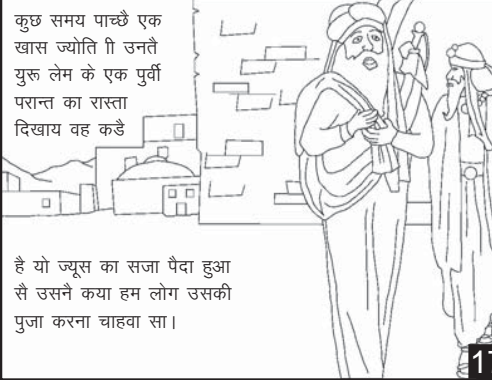 कुछ समय पाच्छै एक
खास ज्योति ाी उनतै
युरू लेम के एक पुर्वी
परान्त का रास्ता
दिखाय वह कडै
है यो ज्यूस का सजा पैदा हुआ
सै उसनै कया हम लोग उसकी
पुजा करना चाहवा सा।
17